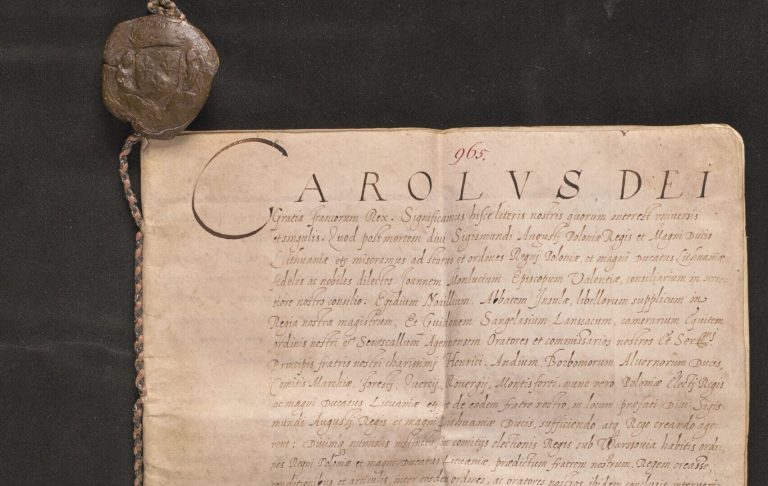 965.
CAROLVS DEI
Gratia francorum Rex. Significamus hisce literis nostris quorum interest vniversis
et singulis. Quod post mortem divi Sigismundi Augustj Poloniæ Regis et Magni Ducis
Lithuaniæ etc miseramus ad status et ordines Regni Poloniæ, et magni Ducatus Lithuaniæ
fideles ac nobiles dilectos Joannem Monlucium Episcopum Valentiæ, consiliarium in secre
tiore nostro consilio: Egidium Novillium, Abbatem Insulæ, libellorum supplicum in
Regia nostra magistrum, Et Guidonem Sangelasium Lanssacum, camerarum Equitem
ordinis nostri et Senescallum Agennensem Oratores et commissarios nostros Et
Principis fratris nostri charissimi Henrici, Andium, Borboniorum Alvernorum Ducis,
Comitis Marchiæ, foresij, Quercij, Rovergij, Montisforti, nunc vero Poloniæ Electj Regis
ac magni Ducatus Lituaniæ etc et de eodem fratre nostro, in locum præfati Divi Sigis
mundi Augustj Regis et magni Lithuaniæ Ducis, sufficiendo atq Rege creando age
rent: numinis in comitijs electionis Regis sub Varssovia habitis ordi
nes Regni Poloniæ et magni Ducatus Lituaniæ, prædictum fratrem nostrum, Regem creasse,
et articulis, inter eosdem ordines, ac oratores nostros ibidem conclusis